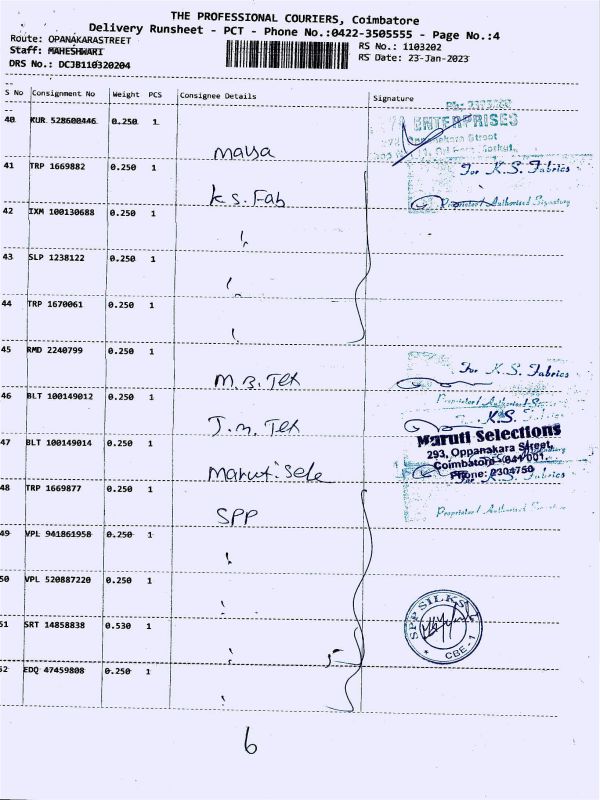 THE PROFESSIONAL COURIERS, Coimbatore
Delivery Runsheet - PCT - Phone No.:0422-3505555 - Page No.:4
Route: OPANAKARASTREET
RS No.: 1103202
Staff: MAHESHWARI
RS Date: 23-Jan-2023
DRS No.: DCJB110320204
S No Consignment No Weight PCS Consignee Details Signature
40 KUR 528600446 0.250 1
ENTERPRISES
41 TRP 1669882 0.250 1
K.S. Fab
For K.S. Fabrics
Proprietor / Authorised Signatory
42 IXM 100130688 0.250 1
43 SLP 1238122 0.250 1
44 TRP 1670061 0.250 1
45 RMD 2240799 0.250 1
M.B. Tex
For K.S. Fabrics
46 BLT 100149012 0.250 1
J.M. Tex
K.S.
47 BLT 100149014 0.250 1
Maruti Sele
Maruti Selections
293, Oppanakara Street,
Coimbatore - 641 001.
Phone: 2304750
48 TRP 1669877 0.250 1
SPP
49 VPL 941861958 0.250 1
50 VPL 520887220 0.250 1
51 SRT 14858838 0.530 1
52 EDQ 47459808 0.250 1
SPP SILKS
CBE - 1
6